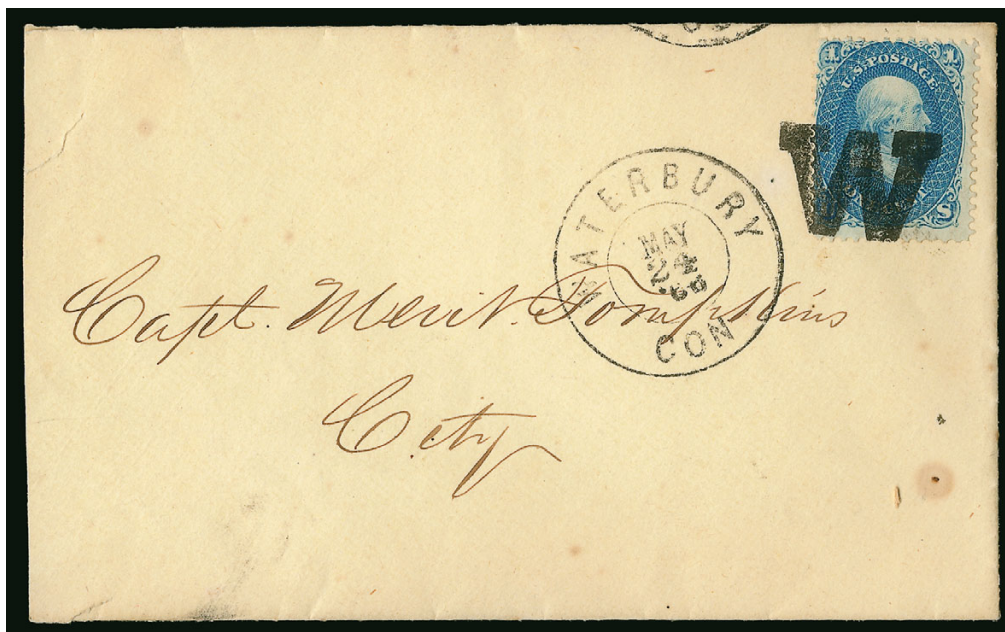 1 U.S. POSTAGE 1
W
WATERBURY
MAY
24
CON
Capt. Merit. Tompkins
City